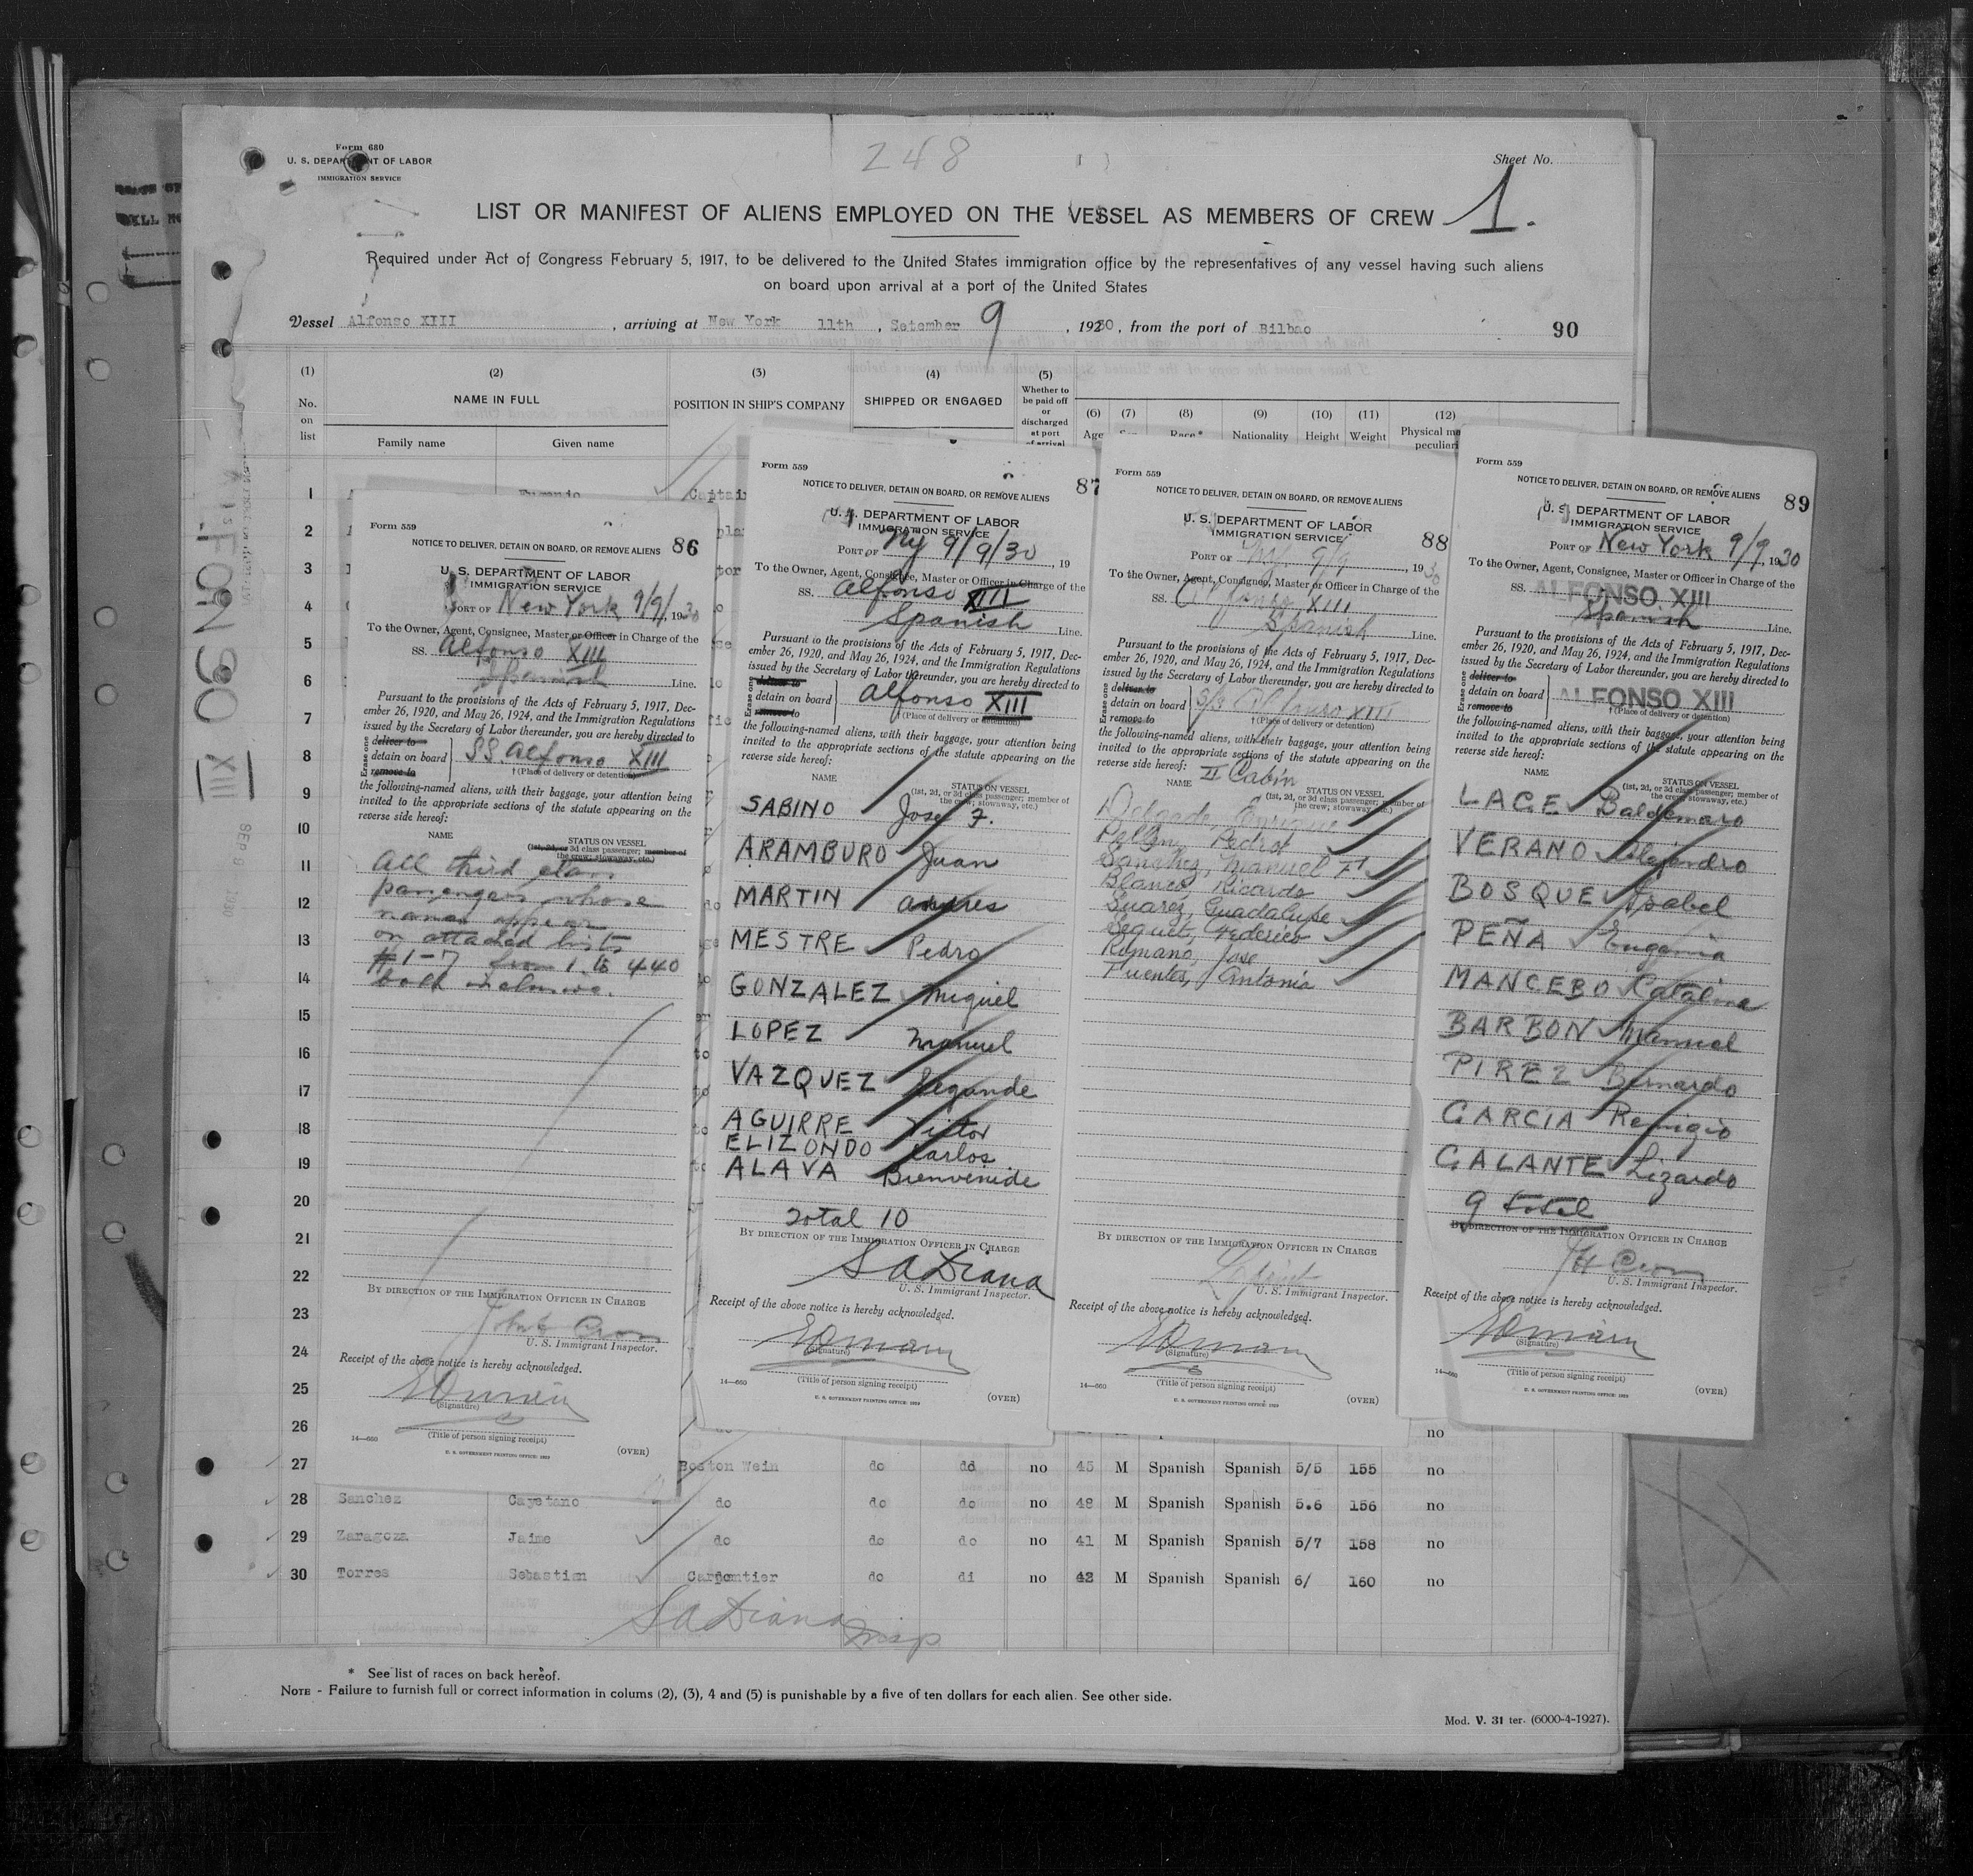 Form 680
U. S. DEPARTMENT OF LABOR
IMMIGRATION SERVICE
248
Sheet No.
1.
LIST OR MANIFEST OF ALIENS EMPLOYED ON THE VESSEL AS MEMBERS OF CREW
Required under Act of Congress February 5, 1917, to be delivered to the United States immigration office by the representatives of any vessel having such aliens
on board upon arrival at a port of the United States
Vessel Alfonso XIII , arriving at New York 11th , Setember 9 , 1930 , from the port of Bilbao 90
(1) No. on list
(2) NAME IN FULL
Family name Given name
(3) POSITION IN SHIP'S COMPANY
(4) SHIPPED OR ENGAGED
(5) Whether to be paid off or discharged at port of arrival
(6) Age
(7)
(8) Race*
(9) Nationality
(10) Height
(11) Weight
(12) Physical
ALFONSO XIII
SEP 9 1930
1
2
3
4
5
6
7
8
9
10
11
12
13
14
15
16
17
18
19
20
21
22
23
24
25
26 no
27 Boston Wein do dd no 45 M Spanish Spanish 5/5 155 no
28 Sanchez Cayetano do do do no 48 M Spanish Spanish 5.6 156 no
29 Zaragoza Jaime do do do no 41 M Spanish Spanish 5/7 158 no
30 Torres Sebastian Carpentier do di no 42 M Spanish Spanish 6/ 160 no
SADiana Insp
* See list of races on back hereof.
NOTE - Failure to furnish full or correct information in colums (2), (3), 4 and (5) is punishable by a five of ten dollars for each alien. See other side.
Mod. V. 31 ter. (6000-4-1927).
Form 559
NOTICE TO DELIVER, DETAIN ON BOARD, OR REMOVE ALIENS 86
U. S. DEPARTMENT OF LABOR
IMMIGRATION SERVICE
PORT OF New York 9/9/, 1930
To the Owner, Agent, Consignee, Master or Officer in Charge of the
SS. Alfonso XIII
Spanish Line.
Pursuant to the provisions of the Acts of February 5, 1917, Dec-
ember 26, 1920, and May 26, 1924, and the Immigration Regulations
issued by the Secretary of Labor thereunder, you are hereby directed to
Erase one
deliver to
detain on board SS. Alfonso XIII
remove to
† (Place of delivery or detention)
the following-named aliens, with their baggage, your attention being
invited to the appropriate sections of the statute appearing on the
reverse side hereof:
NAME
STATUS ON VESSEL
(1st, 2d, or 3d class passenger; member of
the crew; stowaway, etc.)
All third class
passengers whose
names appear
on attached lists
#1-7 from 1 to 440
both inclusive.
BY DIRECTION OF THE IMMIGRATION OFFICER IN CHARGE
U. S. Immigrant Inspector.
Receipt of the above notice is hereby acknowledged.
(Signature)
(Title of person signing receipt)
14—660
U. S. GOVERNMENT PRINTING OFFICE: 1929
(OVER)
Form 559
NOTICE TO DELIVER, DETAIN ON BOARD, OR REMOVE ALIENS 87
U. S. DEPARTMENT OF LABOR
IMMIGRATION SERVICE
PORT OF NY 9/9/30 , 19
To the Owner, Agent, Consignee, Master or Officer in Charge of the
SS. Alfonso XIII
Spanish Line.
Pursuant to the provisions of the Acts of February 5, 1917, Dec-
ember 26, 1920, and May 26, 1924, and the Immigration Regulations
issued by the Secretary of Labor thereunder, you are hereby directed to
Erase one
deliver to
detain on board Alfonso XIII
remove to
† (Place of delivery or detention)
the following-named aliens, with their baggage, your attention being
invited to the appropriate sections of the statute appearing on the
reverse side hereof:
NAME
STATUS ON VESSEL
(1st, 2d, or 3d class passenger; member of
the crew; stowaway, etc.)
SABINO Jose F.
ARAMBURO Juan
MARTIN Andres
MESTRE Pedro
GONZALEZ Miguel
LOPEZ Manuel
VAZQUEZ Segunde
AGUIRRE Victor
ELIZONDO Carlos
ALAVA Bienvenide
Total 10
BY DIRECTION OF THE IMMIGRATION OFFICER IN CHARGE
SADiana
U. S. Immigrant Inspector.
Receipt of the above notice is hereby acknowledged.
(Signature)
(Title of person signing receipt)
14—660
U. S. GOVERNMENT PRINTING OFFICE: 1929
(OVER)
Form 559
NOTICE TO DELIVER, DETAIN ON BOARD, OR REMOVE ALIENS
88
U. S. DEPARTMENT OF LABOR
IMMIGRATION SERVICE
PORT OF N.Y. 9/9 , 1930
To the Owner, Agent, Consignee, Master or Officer in Charge of the
SS. Alfonso XIII
Spanish Line.
Pursuant to the provisions of the Acts of February 5, 1917, Dec-
ember 26, 1920, and May 26, 1924, and the Immigration Regulations
issued by the Secretary of Labor thereunder, you are hereby directed to
Erase one
deliver to
detain on board S/S Alfonso XIII
remove to
† (Place of delivery or detention)
the following-named aliens, with their baggage, your attention being
invited to the appropriate sections of the statute appearing on the
reverse side hereof: II Cabin
NAME
STATUS ON VESSEL
(1st, 2d, or 3d class passenger; member of
the crew; stowaway, etc.)
Delgado, Enrique
Pedro
Sanchez, Manuel
Blanco, Ricardo
Suarez, Guadalupe
Seguet, Federico
Romano, Jose
Fuentes, Antonia
BY DIRECTION OF THE IMMIGRATION OFFICER IN CHARGE
U. S. Immigrant Inspector.
Receipt of the above notice is hereby acknowledged.
(Signature)
(Title of person signing receipt)
14—660
U. S. GOVERNMENT PRINTING OFFICE: 1929
(OVER)
Form 559
NOTICE TO DELIVER, DETAIN ON BOARD, OR REMOVE ALIENS
89
U. S. DEPARTMENT OF LABOR
IMMIGRATION SERVICE
PORT OF New York 9/9, 1930
To the Owner, Agent, Consignee, Master or Officer in Charge of the
SS. ALFONSO XIII
Spanish Line.
Pursuant to the provisions of the Acts of February 5, 1917, Dec-
ember 26, 1920, and May 26, 1924, and the Immigration Regulations
issued by the Secretary of Labor thereunder, you are hereby directed to
Erase one
deliver to
detain on board ALFONSO XIII
remove to
† (Place of delivery or detention)
the following-named aliens, with their baggage, your attention being
invited to the appropriate sections of the statute appearing on the
reverse side hereof:
NAME
STATUS ON VESSEL
(1st, 2d, or 3d class passenger; member of
the crew; stowaway, etc.)
LAGE Baldemaro
VERANO Alejandro
BOSQUE Isabel
PEÑA Eugenia
MANCEBO Catalina
BARBON Manuel
PIREZ Bernardo
GARCIA Remigio
GALANTE Lizardo
9 total
BY DIRECTION OF THE IMMIGRATION OFFICER IN CHARGE
U. S. Immigrant Inspector.
Receipt of the above notice is hereby acknowledged.
(Signature)
(Title of person signing receipt)
14—660
U. S. GOVERNMENT PRINTING OFFICE: 1929
(OVER)